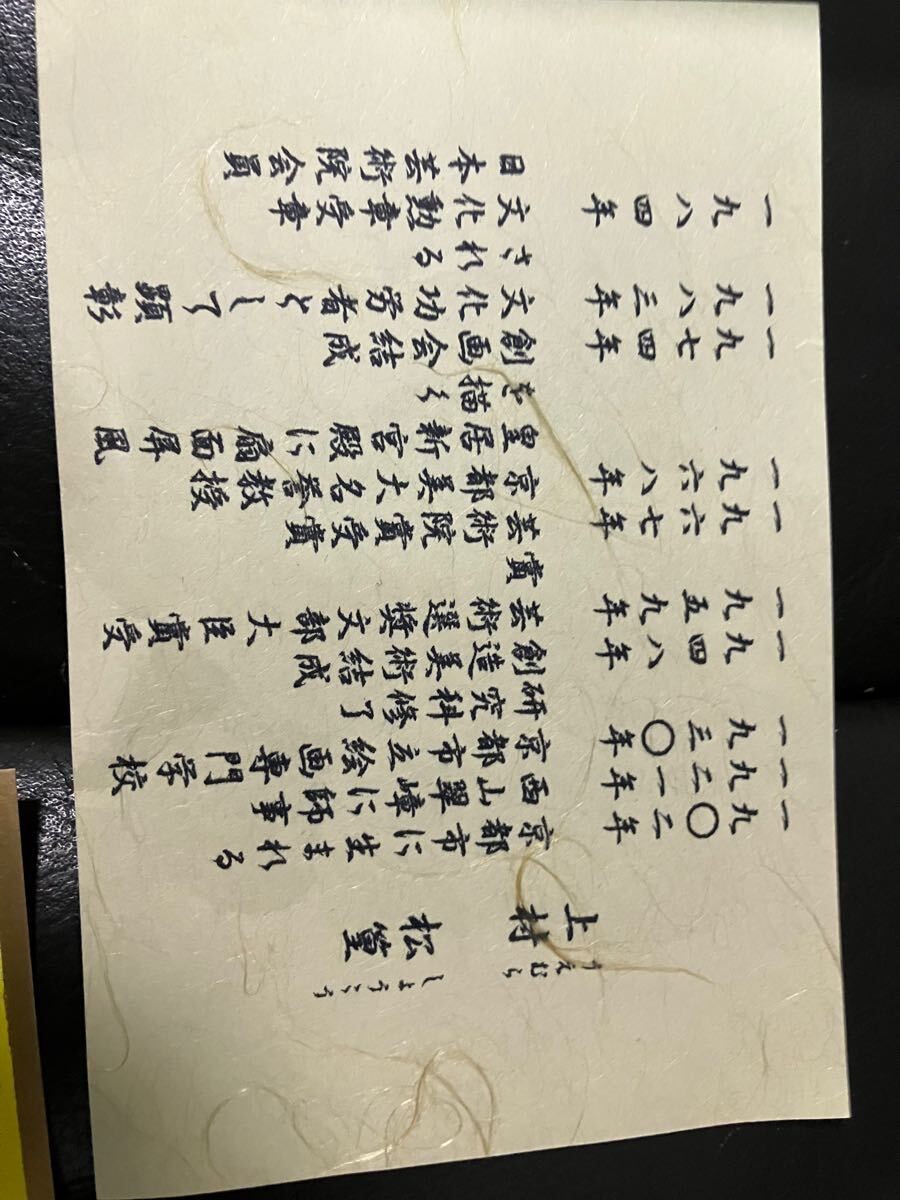 うえむら しょうこう
上村 松篁
一九〇二年 京都市に生まれる
一九二一年 西山翠嶂に師事
一九三〇年 京都市立絵画専門学校
研究科修了
一九四八年 創造美術結成
一九五九年 芸術選奨文部大臣賞受
賞
一九六七年 芸術院賞受賞
一九六八年 京都美大名誉教授
皇居新宮殿に扇面屏風
を描く
一九七四年 創画会結成
一九八三年 文化功労者として顕彰
される
一九八四年 文化勲章受章
日本芸術院会員